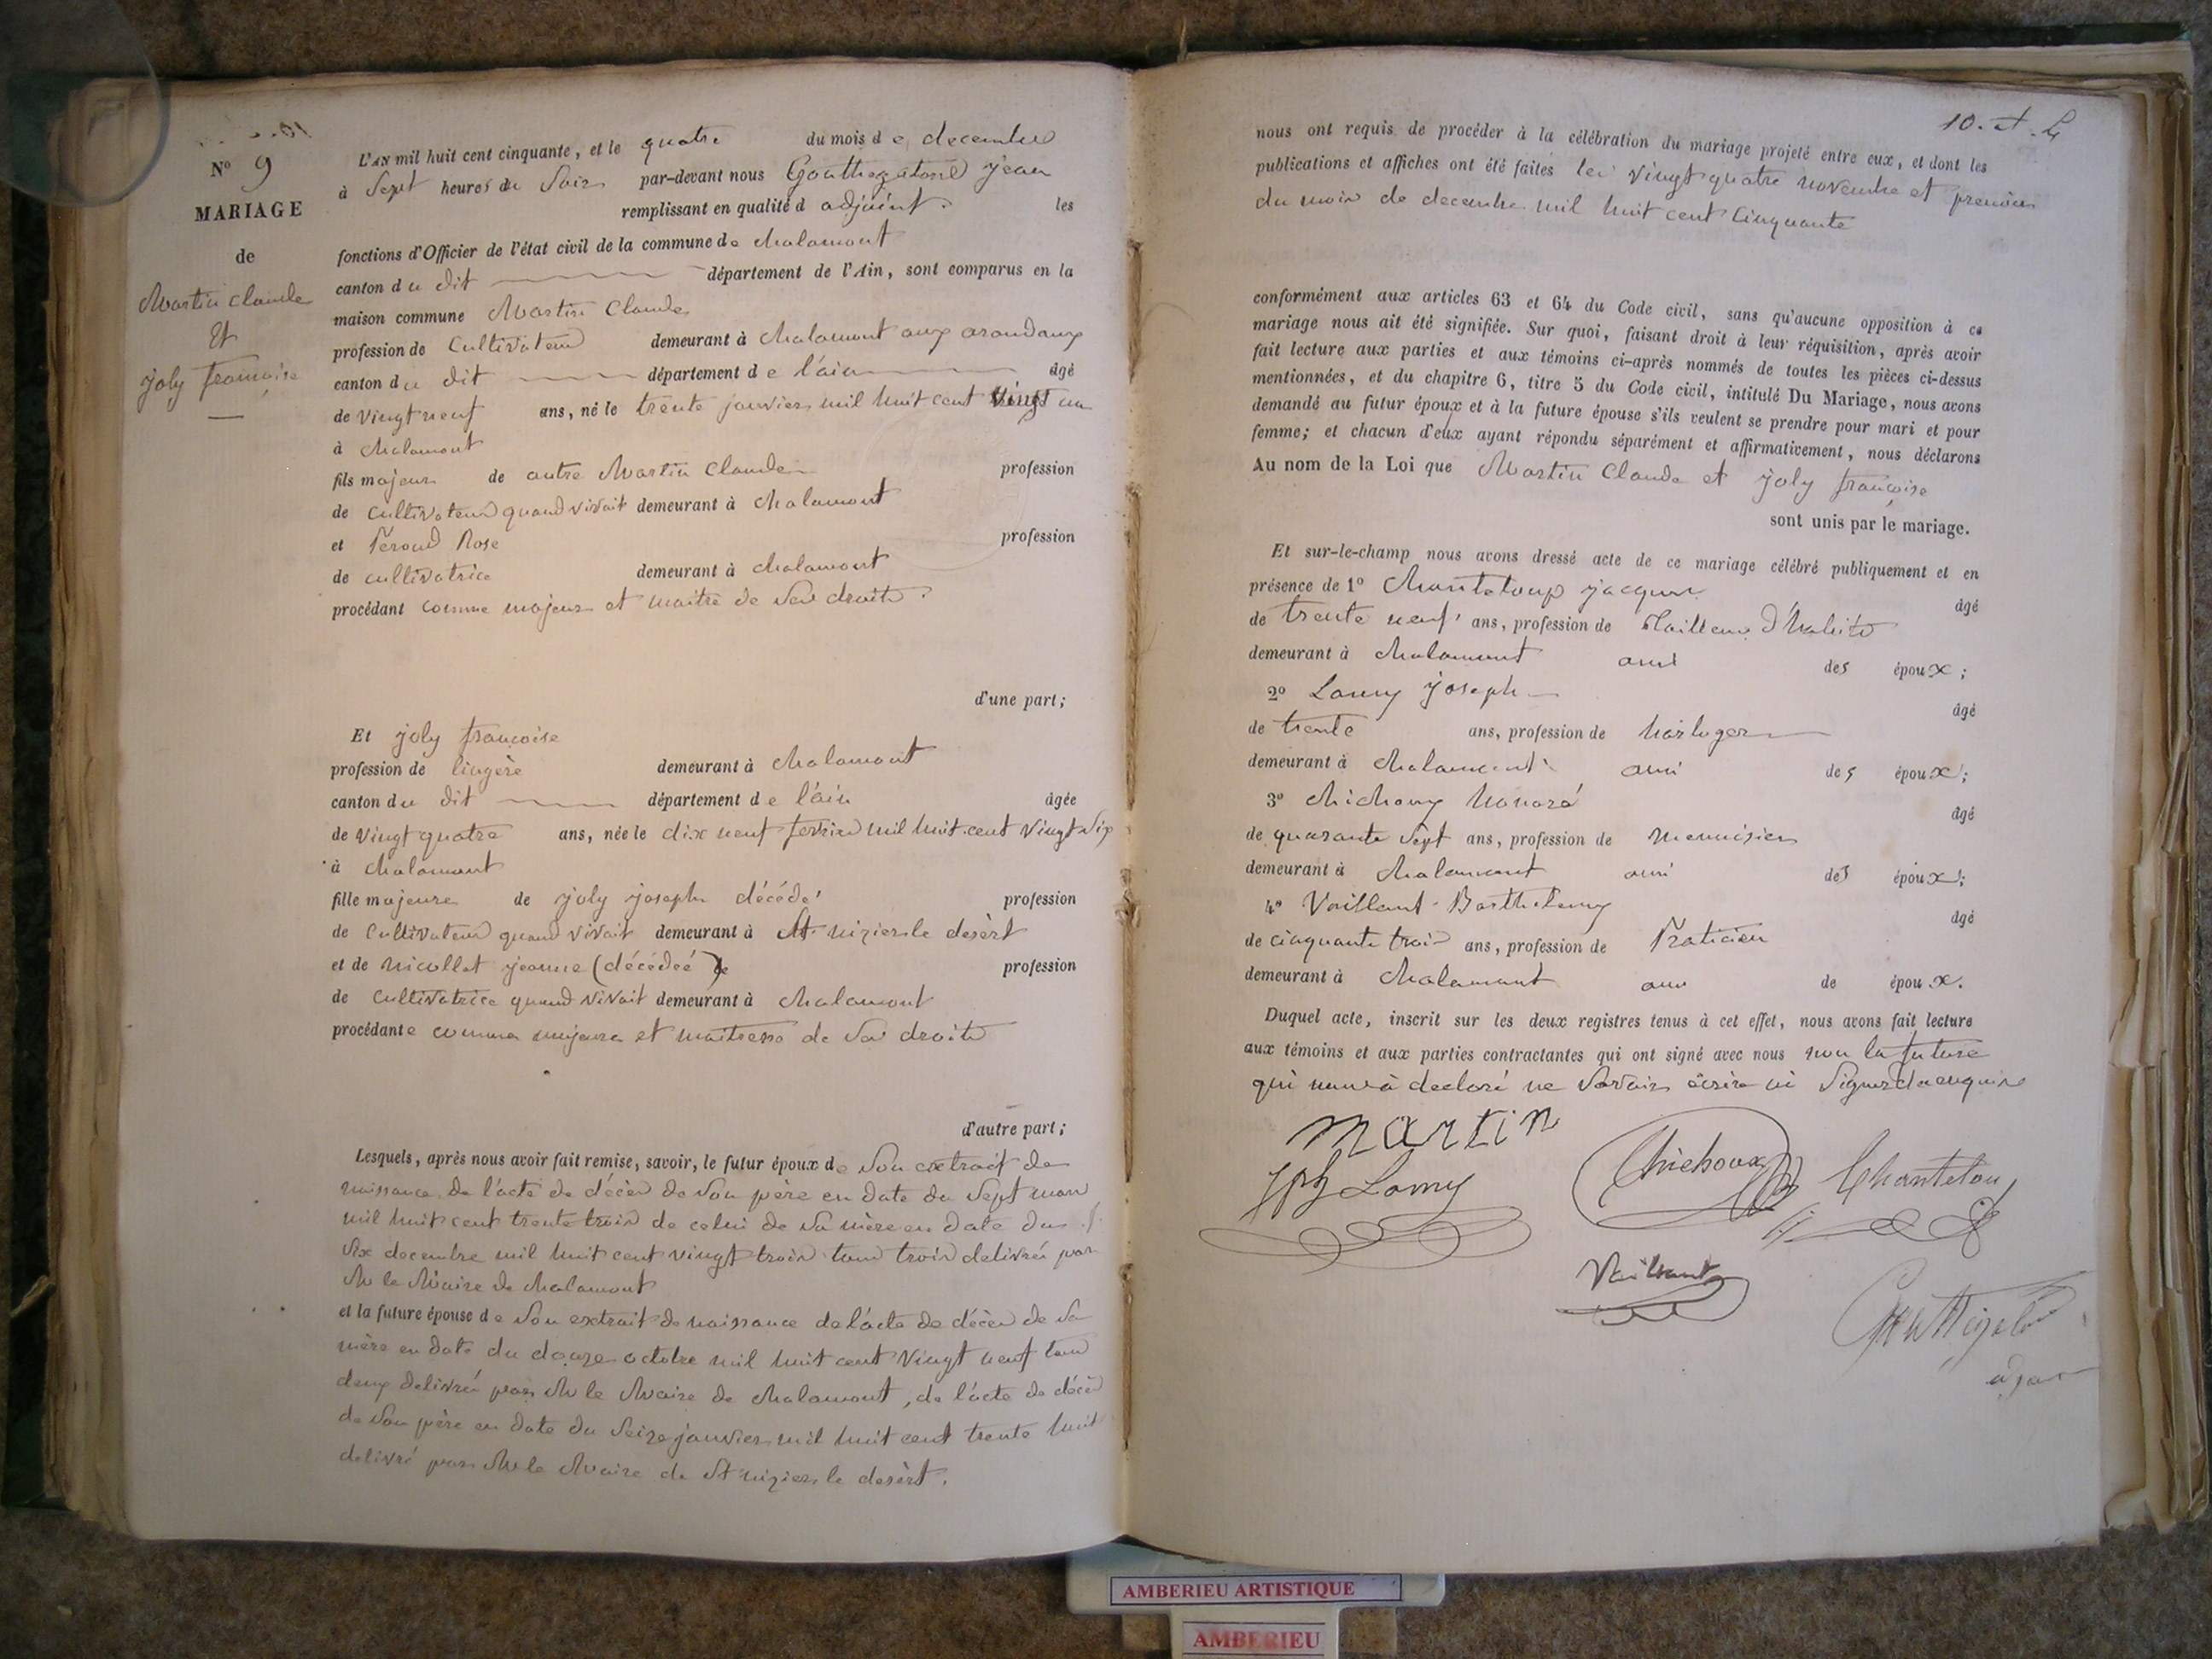 N° 9
MARIAGE
de
Martin Claude
Et
joly françoise
L'AN mil huit cent cinquante, et le quatre du mois de decembre
à Sept heures du Soir par-devant nous jean
remplissant en qualité d adjoint les
fonctions d'Officier de l'état civil de la commune de chalamont
canton du dit département de l'Ain, sont comparus en la
maison commune Martin Claude
profession de Cultivateur demeurant à chalamont aux
canton du dit département de l'ain âgé
de vingt neuf ans, né le trente janvier mil huit cent vingt un
à chalamont
fils majeur de autre Martin Claude profession
de cultivateur quand vivait demeurant à chalamont
et Péroud Rose profession
de cultivatrice demeurant à chalamont
procédant comme majeur et maitre de ses droits.
d'une part;
Et joly françoise
profession de lingère demeurant à chalamont
canton du dit département de l'ain âgée
de vingt quatre ans, née le dix neuf fevrier mil huit cent vingt six
à chalamont
fille majeure de joly joseph décédé profession
de Cultivateur quand vivait demeurant à St nizier le desèrt
et de nicollet jeanne (décédeé) profession
de cultivatrice quand vivait demeurant à chalamont
procédante comme majeure et maitresse de ses droits
d'autre part;
Lesquels, après nous avoir fait remise, savoir, le futur époux de son extrait de
naissance de l'acte de décès de son père en date du sept mars
mil huit cent trente trois de celui de sa mère en date du
six decembre mil huit cent vingt trois tous trois delivrés par
M le Maire de chalamont
et la future épouse de son extrait de naissance de l'acte de décès de sa
mère en date du douze octobre mil huit cent vingt neuf tous
deux delivré par M le Maire de chalamont, de l'acte de décès
de son père en date du seize janvier mil huit cent trente huit
delivré par M le Maire de St nizier le desèrt.
nous ont requis de procéder à la célébration du mariage projeté entre eux, et dont les
publications et affiches ont été faites les vingt quatre novembre et premier
du mois de decembre mil huit cent cinquante
conformément aux articles 63 et 64 du Code civil, sans qu'aucune opposition à ce
mariage nous ait été signifiée. Sur quoi, faisant droit à leur réquisition, après avoir
fait lecture aux parties et aux témoins ci-après nommés de toutes les pièces ci-dessus
mentionnées, et du chapitre 6, titre 5 du Code civil, intitulé Du Mariage, nous avons
demandé au futur époux et à la future épouse s'ils veulent se prendre pour mari et pour
femme; et chacun d'eux ayant répondu séparément et affirmativement, nous déclarons
Au nom de la Loi que Martin Claude et joly françoise
sont unis par le mariage.
Et sur-le-champ nous avons dressé acte de ce mariage célébré publiquement et en
présence de 1° Chanteloup jacques âgé
de trente neuf ans, profession de Tailleur d'habits
demeurant à chalamont ami des époux;
2° Lamy joseph âgé
de trente ans, profession de horloger
demeurant à chalamont ami des époux;
3° chichoux honoré âgé
de quarante sept ans, profession de menuisier
demeurant à chalamont ami des époux;
4° Vaillant Barthelemy âgé
de cinquante trois ans, profession de Praticien
demeurant à chalamont ami de époux.
Duquel acte, inscrit sur les deux registres tenus à cet effet, nous avons fait lecture
aux témoins et aux parties contractantes qui ont signé avec nous non la future
qui nous à declaré ne savoir écrire ni signer de ce enquise
martin
Jph Lamy
Chichoux
Chantelou
Vaillant
AMBERIEU ARTISTIQUE
AMBERIEU